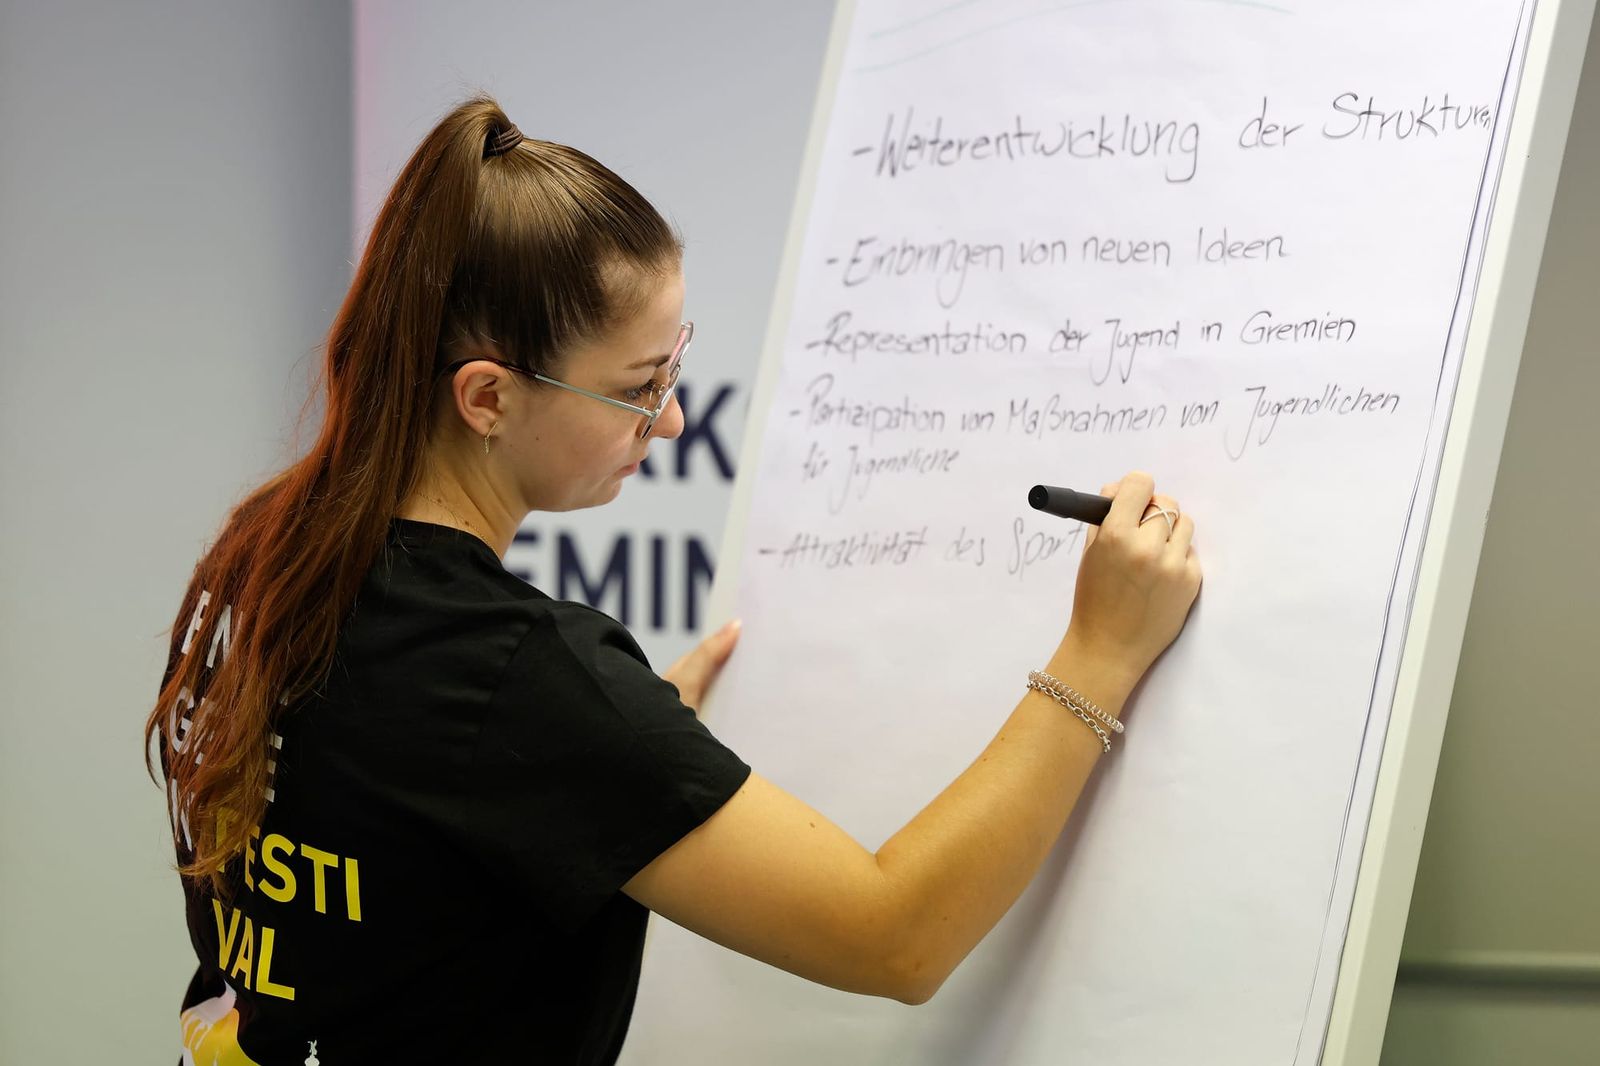 - Weiterentwicklung der Strukturen
- Einbringen von neuen Ideen
- Representation der Jugend in Gremien
- Partizipation von Maßnahmen von Jugendlichen
für Jugendliche
- Attraktivität des Sport
FESTI
VAL